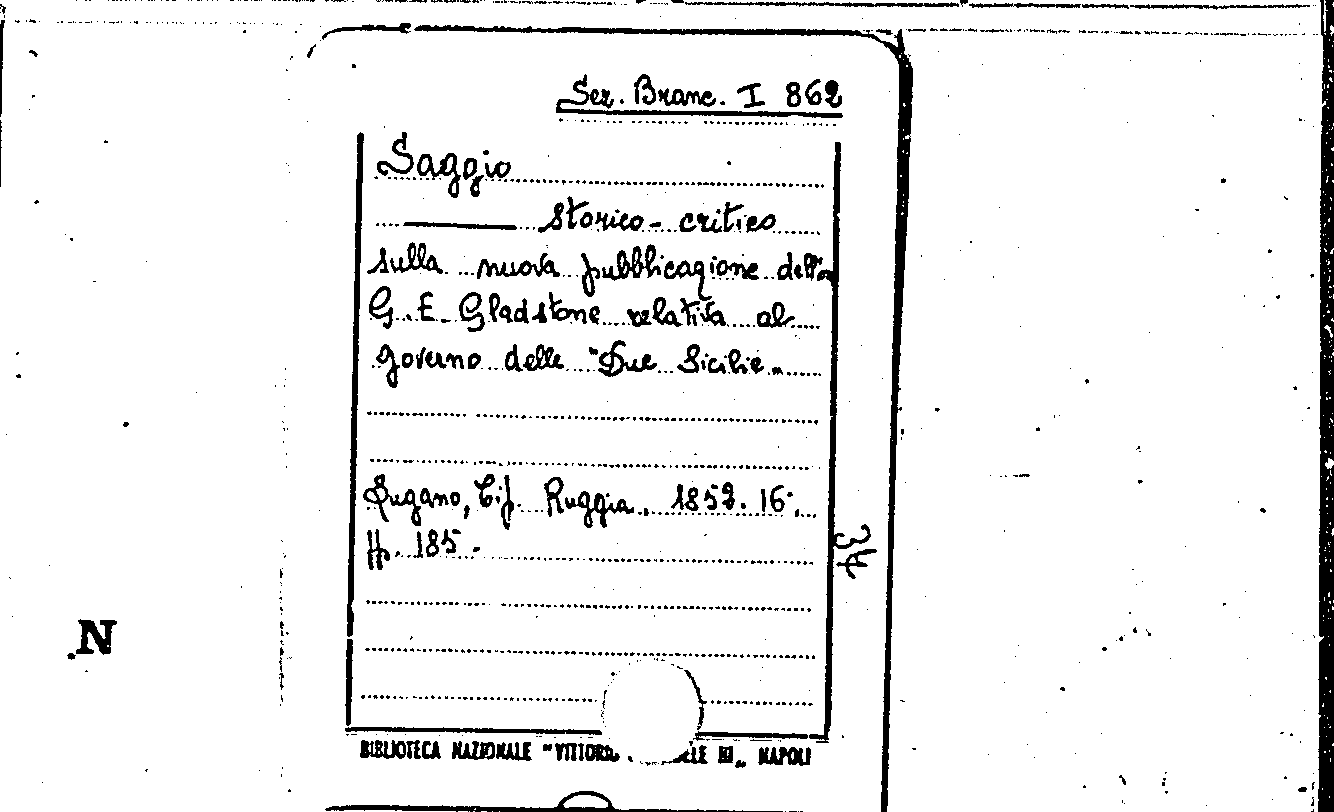 Sez. Branc. I 862
Saggio
storico-critico
sulla nuova pubblicazione dell'on
G. E. Gladstone relativa al
governo delle "Due Sicilie„
Lugano, Tip. Ruggia, 1852. 16.,
pp. 185.
34
N
BIBLIOTECA NAZIONALE "VITTORIO III„ NAPOLI